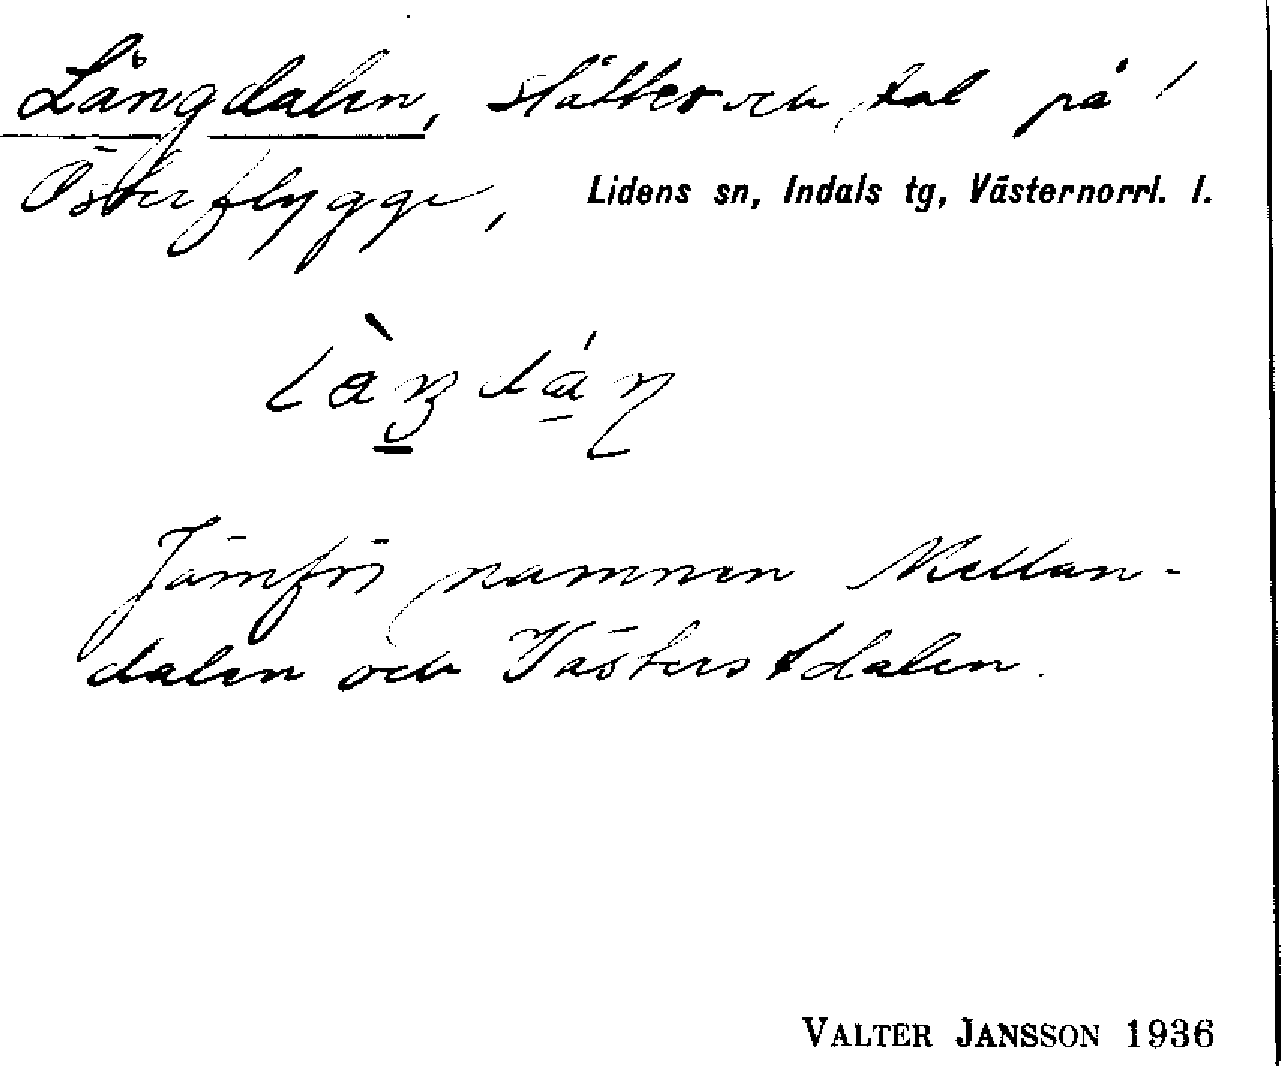 Långdalen, slätter och dal på
Österflygge, Lidens sn, Indals tg, Västernorrl. l.
Jämför namnen Mellan-
dalen och Västerstdalen.
VALTER JANSSON 1936